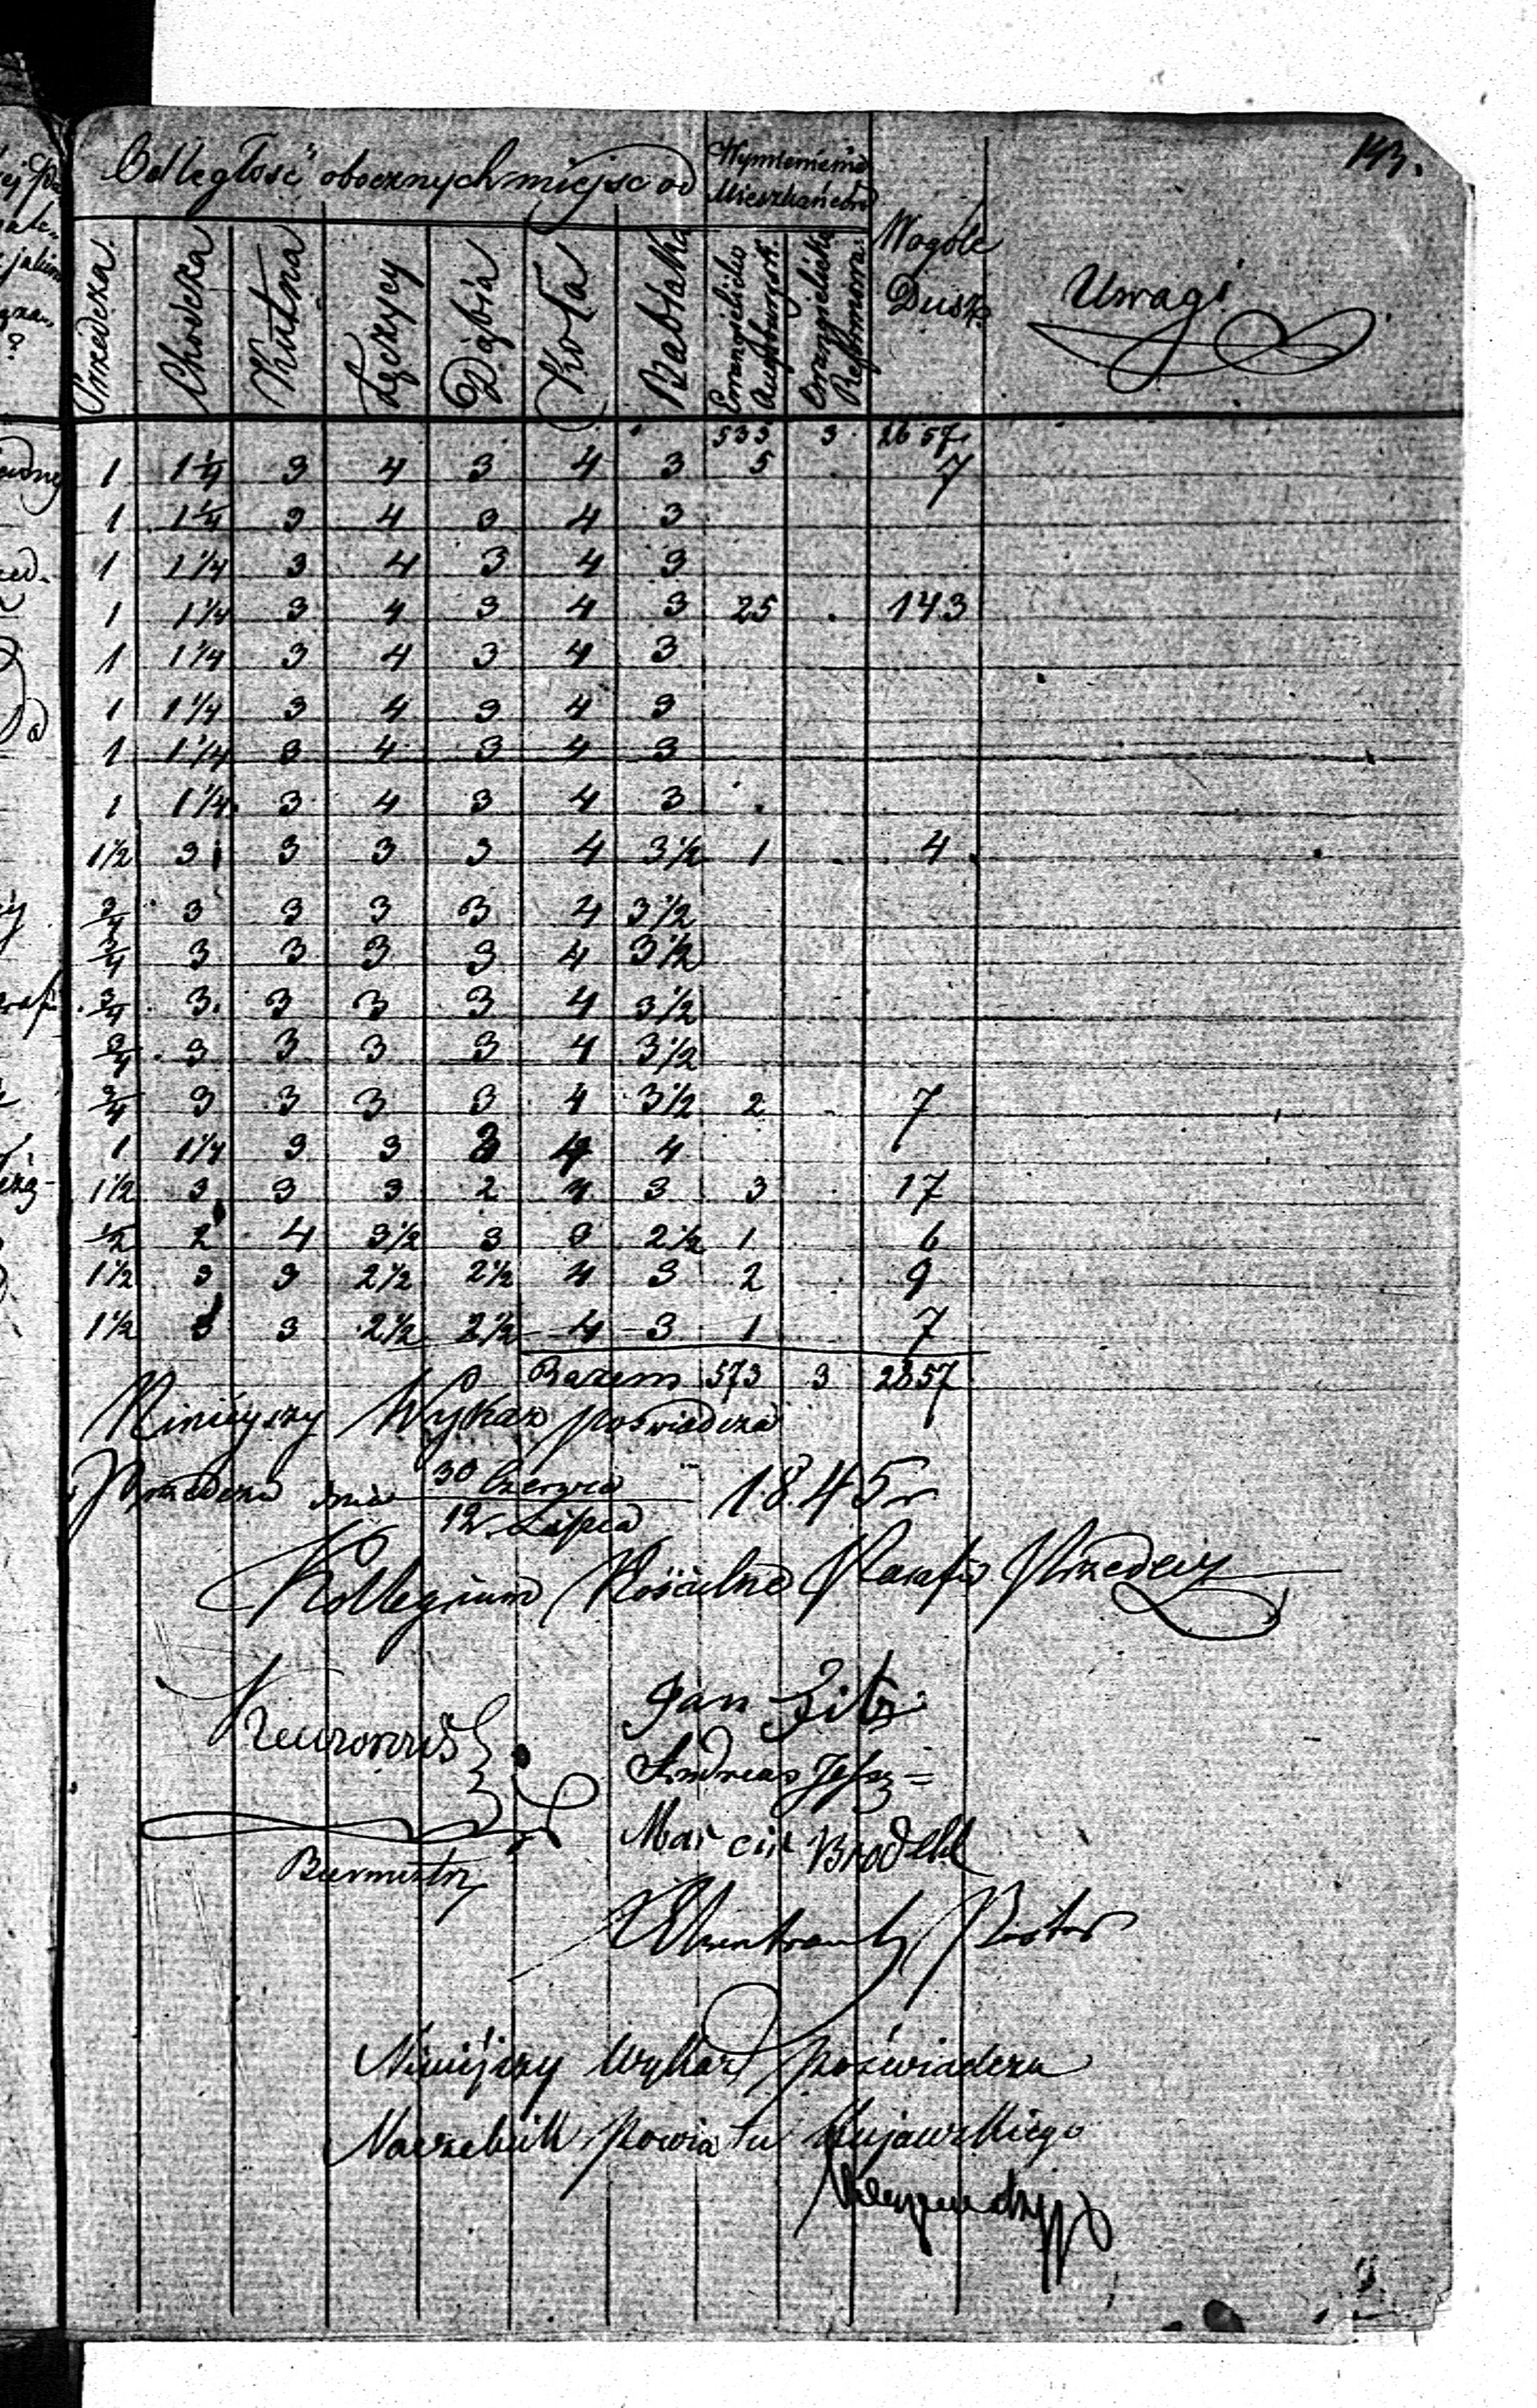 143.
Odległość obocznych miejsc od
Wymienienie Mieszkańców
Wogóle Dusz
Uwagi
Przedcza Chodcza Kutna Łęczycy Dąbia Koła Babiaka Ewangielicko Augsburgsk. Ewangielicko Reformow.
533 3 2657
1 1 1/4 3 4 3 4 3 5 . 7
1 1 1/4 3 4 3 4 3
1 1 1/4 3 4 3 4 3
1 1 1/4 3 4 3 4 3 25 . 143
1 1 1/4 3 4 3 4 3
1 1 1/4 3 4 3 4 3
1 1 1/4 3 4 3 4 3
1 1 1/4 3 4 3 4 3 .
1 1/2 3 3 3 3 4 3 1/2 1 . 4
3/4 3 3 3 3 4 3 1/2
3/4 3 3 3 3 4 3 1/2
3/4 3 3 3 3 4 3 1/2
3/4 3 3 3 3 4 3 1/2
3/4 3 3 3 3 4 3 1/2 2 . 7
1 1 1/4 3 3 3 4 4
1 1/2 3 3 3 2 4 3 3 . 17
1/2 2 4 3 1/2 3 3 2 1/2 1 . 6
1 1/2 3 3 2 1/2 2 1/2 4 3 2 . 9
1 1/2 3 3 2 1/2 2 1/2 4 3 1 . 7
Razem 573 3 2857
Niniejszy Wykaz poswiadcza
Przedcza dnia 30 Czerwca / 12 Lipca 1845 r
Kollegium Kościelne Parafii Przedeczy
Jan Zilz
Andreas
Marcin Brodehl
Burmistrz
Pastor
Niniéjszy Wykaz poświadcza
Naczelnik Powiatu Kujawskiego